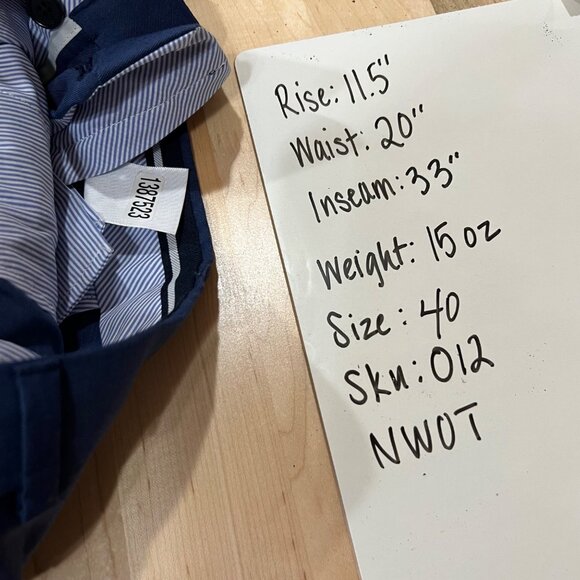 1387523
Rise: 11.5"
Waist: 20"
Inseam: 33"
Weight: 15 oz
Size: 40
Sku: 012
NWOT